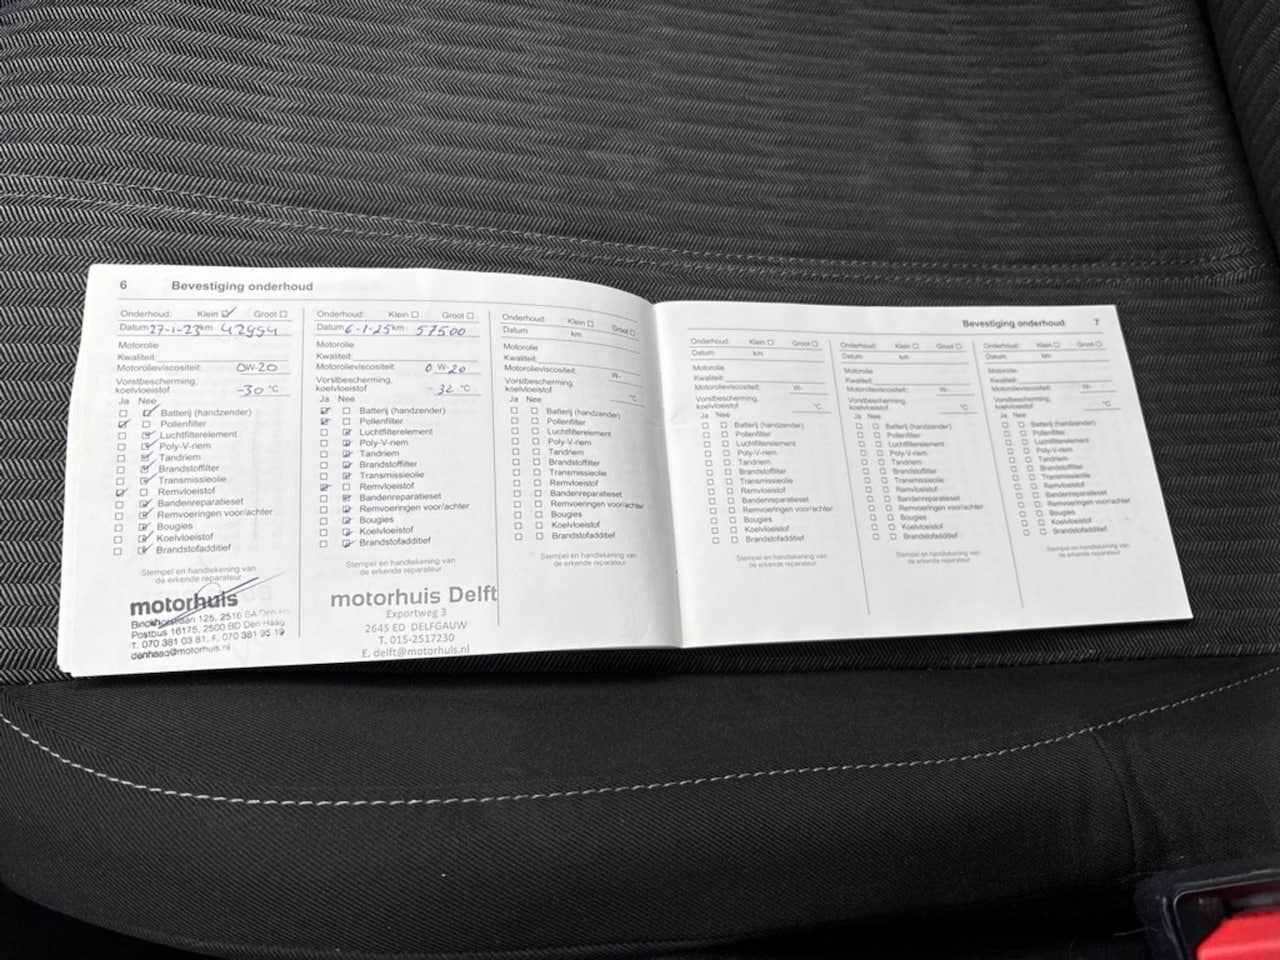 6 Bevestiging onderhoud
Onderhoud: Klein ☑ Groot ☐
Datum 27-1-23 km 42994
Motorolie
Kwaliteit:
Motorolieviscositeit: 0W-20
Vorstbescherming,
koelvloeistof -30 °C
Ja Nee
☐ ☑ Batterij (handzender)
☑ ☐ Pollenfilter
☐ ☑ Luchtfilterelement
☐ ☑ Poly-V-riem
☐ ☑ Tandriem
☐ ☑ Brandstoffilter
☐ ☑ Transmissieolie
☑ ☐ Remvloeistof
☐ ☑ Bandenreparatieset
☐ ☑ Remvoeringen voor/achter
☐ ☑ Bougies
☐ ☑ Koelvloeistof
☐ ☑ Brandstofadditief
Stempel en handtekening van
de erkende reparateur
motorhuis
Binckhorstlaan 125, 2516 BA Den
Postbus 16175, 2500 BD Den Haag
T. 070 381 03 81. F. 070 381 95 19
denhaag@motorhuis.nl
Onderhoud: Klein ☐ Groot ☐
Datum 6-1-25 km 57500
Motorolie
Kwaliteit:
Motorolieviscositeit: 0 W-20
Vorstbescherming,
koelvloeistof -32 °C
Ja Nee
☑ ☐ Batterij (handzender)
☑ ☐ Pollenfilter
☐ ☑ Luchtfilterelement
☐ ☑ Poly-V-riem
☐ ☑ Tandriem
☐ ☑ Brandstoffilter
☐ ☑ Transmissieolie
☑ ☐ Remvloeistof
☐ ☑ Bandenreparatieset
☐ ☑ Remvoeringen voor/achter
☐ ☑ Bougies
☐ ☑ Koelvloeistof
☐ ☑ Brandstofadditief
Stempel en handtekening van
de erkende reparateur
motorhuis Delft
Exportweg 3
2645 ED DELFGAUW
T. 015-2517230
E. delft@motorhuis.nl
Onderhoud: Klein ☐ Groot ☐
Datum km
Motorolie
Kwaliteit:
Motorolieviscositeit: W-
Vorstbescherming,
koelvloeistof °C
Ja Nee
☐ ☐ Batterij (handzender)
☐ ☐ Pollenfilter
☐ ☐ Luchtfilterelement
☐ ☐ Poly-V-riem
☐ ☐ Tandriem
☐ ☐ Brandstoffilter
☐ ☐ Transmissieolie
☐ ☐ Remvloeistof
☐ ☐ Bandenreparatieset
☐ ☐ Remvoeringen voor/achter
☐ ☐ Bougies
☐ ☐ Koelvloeistof
☐ ☐ Brandstofadditief
Stempel en handtekening van
de erkende reparateur
Bevestiging onderhoud 7
Onderhoud: Klein ☐ Groot ☐
Datum km
Motorolie
Kwaliteit:
Motorolieviscositeit: W-
Vorstbescherming,
koelvloeistof °C
Ja Nee
☐ ☐ Batterij (handzender)
☐ ☐ Pollenfilter
☐ ☐ Luchtfilterelement
☐ ☐ Poly-V-riem
☐ ☐ Tandriem
☐ ☐ Brandstoffilter
☐ ☐ Transmissieolie
☐ ☐ Remvloeistof
☐ ☐ Bandenreparatieset
☐ ☐ Remvoeringen voor/achter
☐ ☐ Bougies
☐ ☐ Koelvloeistof
☐ ☐ Brandstofadditief
Stempel en handtekening van
de erkende reparateur
Onderhoud: Klein ☐ Groot ☐
Datum km
Motorolie
Kwaliteit:
Motorolieviscositeit: W-
Vorstbescherming,
koelvloeistof °C
Ja Nee
☐ ☐ Batterij (handzender)
☐ ☐ Pollenfilter
☐ ☐ Luchtfilterelement
☐ ☐ Poly-V-riem
☐ ☐ Tandriem
☐ ☐ Brandstoffilter
☐ ☐ Transmissieolie
☐ ☐ Remvloeistof
☐ ☐ Bandenreparatieset
☐ ☐ Remvoeringen voor/achter
☐ ☐ Bougies
☐ ☐ Koelvloeistof
☐ ☐ Brandstofadditief
Stempel en handtekening van
de erkende reparateur
Onderhoud: Klein ☐ Groot ☐
Datum km
Motorolie
Kwaliteit:
Motorolieviscositeit: W-
Vorstbescherming,
koelvloeistof °C
Ja Nee
☐ ☐ Batterij (handzender)
☐ ☐ Pollenfilter
☐ ☐ Luchtfilterelement
☐ ☐ Poly-V-riem
☐ ☐ Tandriem
☐ ☐ Brandstoffilter
☐ ☐ Transmissieolie
☐ ☐ Remvloeistof
☐ ☐ Bandenreparatieset
☐ ☐ Remvoeringen voor/achter
☐ ☐ Bougies
☐ ☐ Koelvloeistof
☐ ☐ Brandstofadditief
Stempel en handtekening van
de erkende reparateur